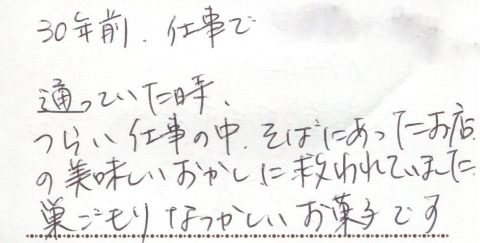 30年前、仕事で
通っていた時、
つらい仕事の中、そばにあったお店
の美味しいおかしに救われていました
巣ごもりなつかしいお菓子です